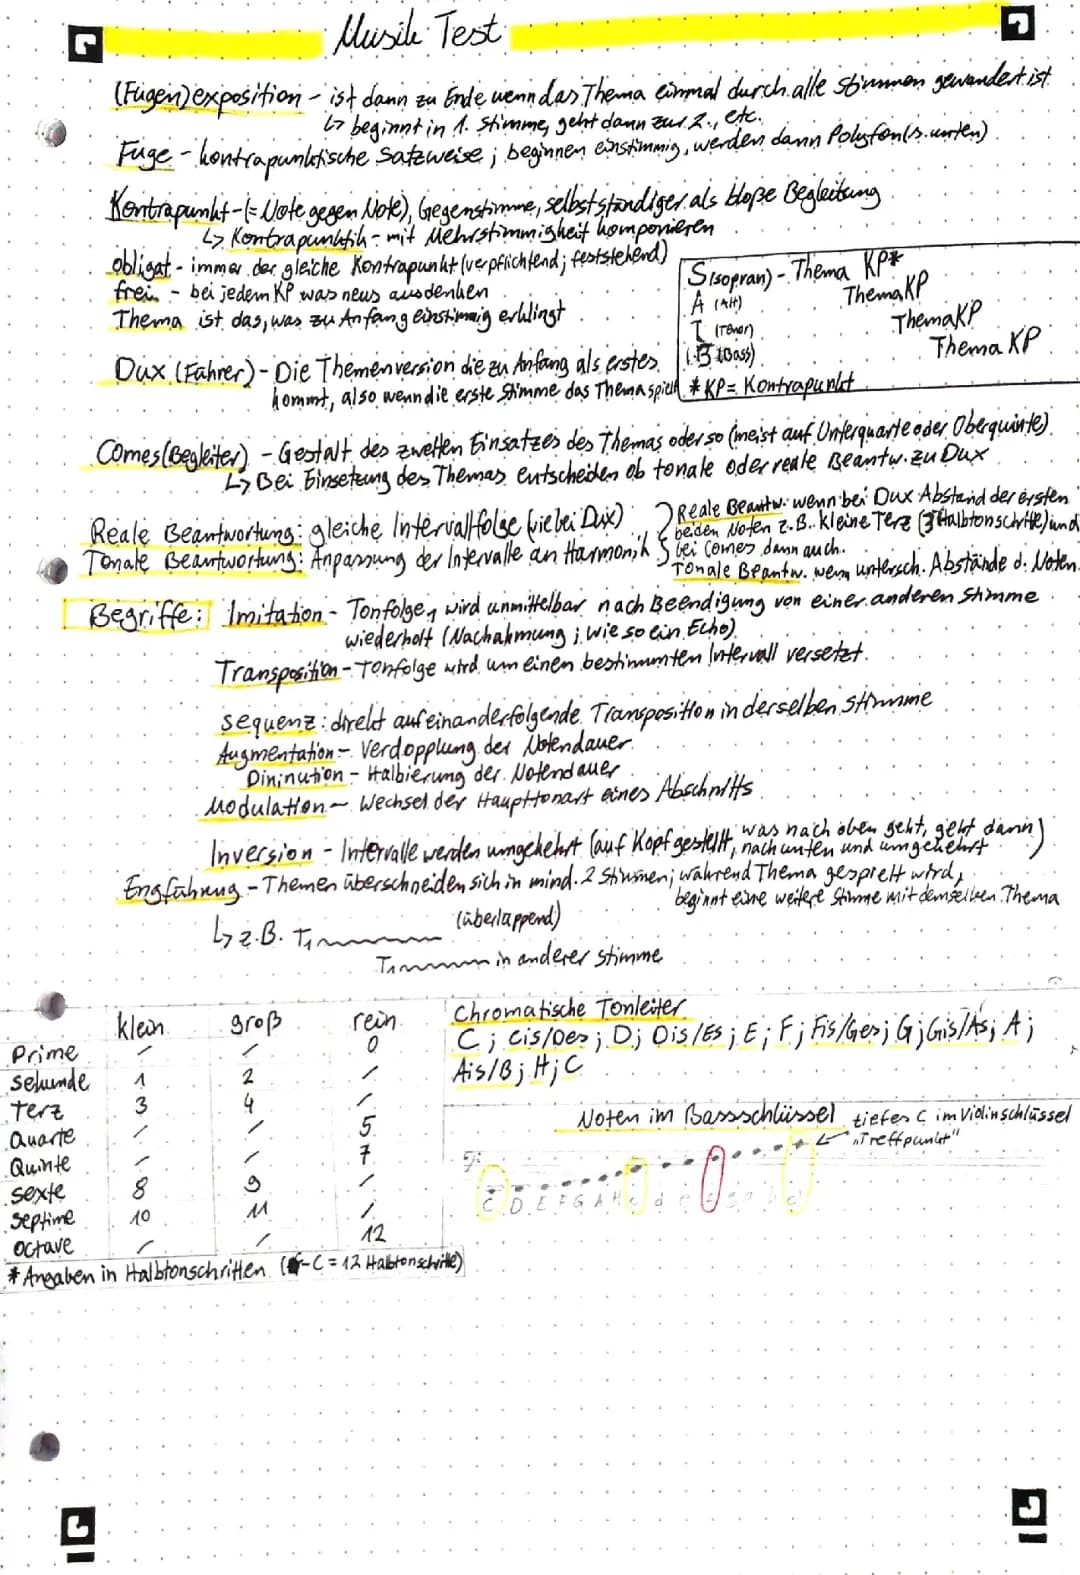 Musik Test
(Fugen)exposition - ist dann zu Ende wenn das Thema einmal durch alle Stimmen gewandert ist
↳ beginnt in 1. Stimme, geht dann zur 2., etc.
Fuge - kontrapunktische Satzweise; beginnen einstimmig, werden dann Polyfon (s. unten)
Kontrapunkt - (= Note gegen Note), Gegenstimme, selbstständiger als bloße Begleitung
↳ Kontrapunktik - mit Mehrstimmigkeit komponieren
obligat - immer der gleiche Kontrapunkt (verpflichtend; feststehend)
frei - bei jedem KP was neues ausdenken
Thema ist das, was zu Anfang einstimmig erklingt
S(sopran) - Thema KP*
A (Alt) Thema KP
T (Tenor) Thema KP
B (Bass) Thema KP
* KP = Kontrapunkt
Dux (Führer) - Die Themenversion die zu Anfang als erstes
kommt, also wenn die erste Stimme das Thema spielt
Comes (Begleiter) - Gestalt des zweiten Einsatzes des Themas oder so (meist auf Unterquarte oder Oberquinte)
↳ Bei Einsetzung des Themas entscheiden ob tonale oder reale Beantw. zu Dux
Reale Beantwortung: gleiche Intervallfolge (wie bei Dux)
Tonale Beantwortung: Anpassung der Intervalle an Harmonik
Reale Beantw. wenn bei Dux Abstand der ersten
beiden Noten z.B. kleine Terz (3 Halbtonschritte) und
bei Comes dann auch.
Tonale Beantw. wenn untersch. Abstände d. Noten.
Begriffe: Imitation - Tonfolge, wird unmittelbar nach Beendigung von einer anderen Stimme
wiederholt (Nachahmung; wie so ein Echo)
Transposition - Tonfolge wird um einen bestimmten Intervall versetzt.
Sequenz: direkt aufeinanderfolgende Transposition in derselben Stimme
Augmentation - Verdopplung der Notendauer
Dininution - Halbierung der Notendauer
Modulation - Wechsel der Haupttonart eines Abschnitts
Inversion - Intervalle werden umgekehrt (auf Kopf gestellt, was nach oben geht, geht dann
nach unten und umgekehrt)
Engführung - Themen überschneiden sich in mind. 2 Stimmen; während Thema gespielt wird,
beginnt eine weitere Stimme mit demselben Thema
(überlappend)
↳ z.B. T
T in anderer Stimme
klein groß rein
Prime / / 0
Sekunde 1 2 /
Terz 3 4 /
Quarte / / 5
Quinte / / 7
Sexte 8 9 /
Septime 10 11 /
Octave / / 12
* Angaben in Halbtonschritten (C-C = 12 Halbtonschritte)
Chromatische Tonleiter
C; Cis/Des; D; Dis/Es; E; F; Fis/Ges; G; Gis/As; A;
Ais/B; H; C
Noten im Bassschlüssel
tiefes C im Violinschlüssel
"Treffpunkt"
C D E F G A H c d e f g a h c'